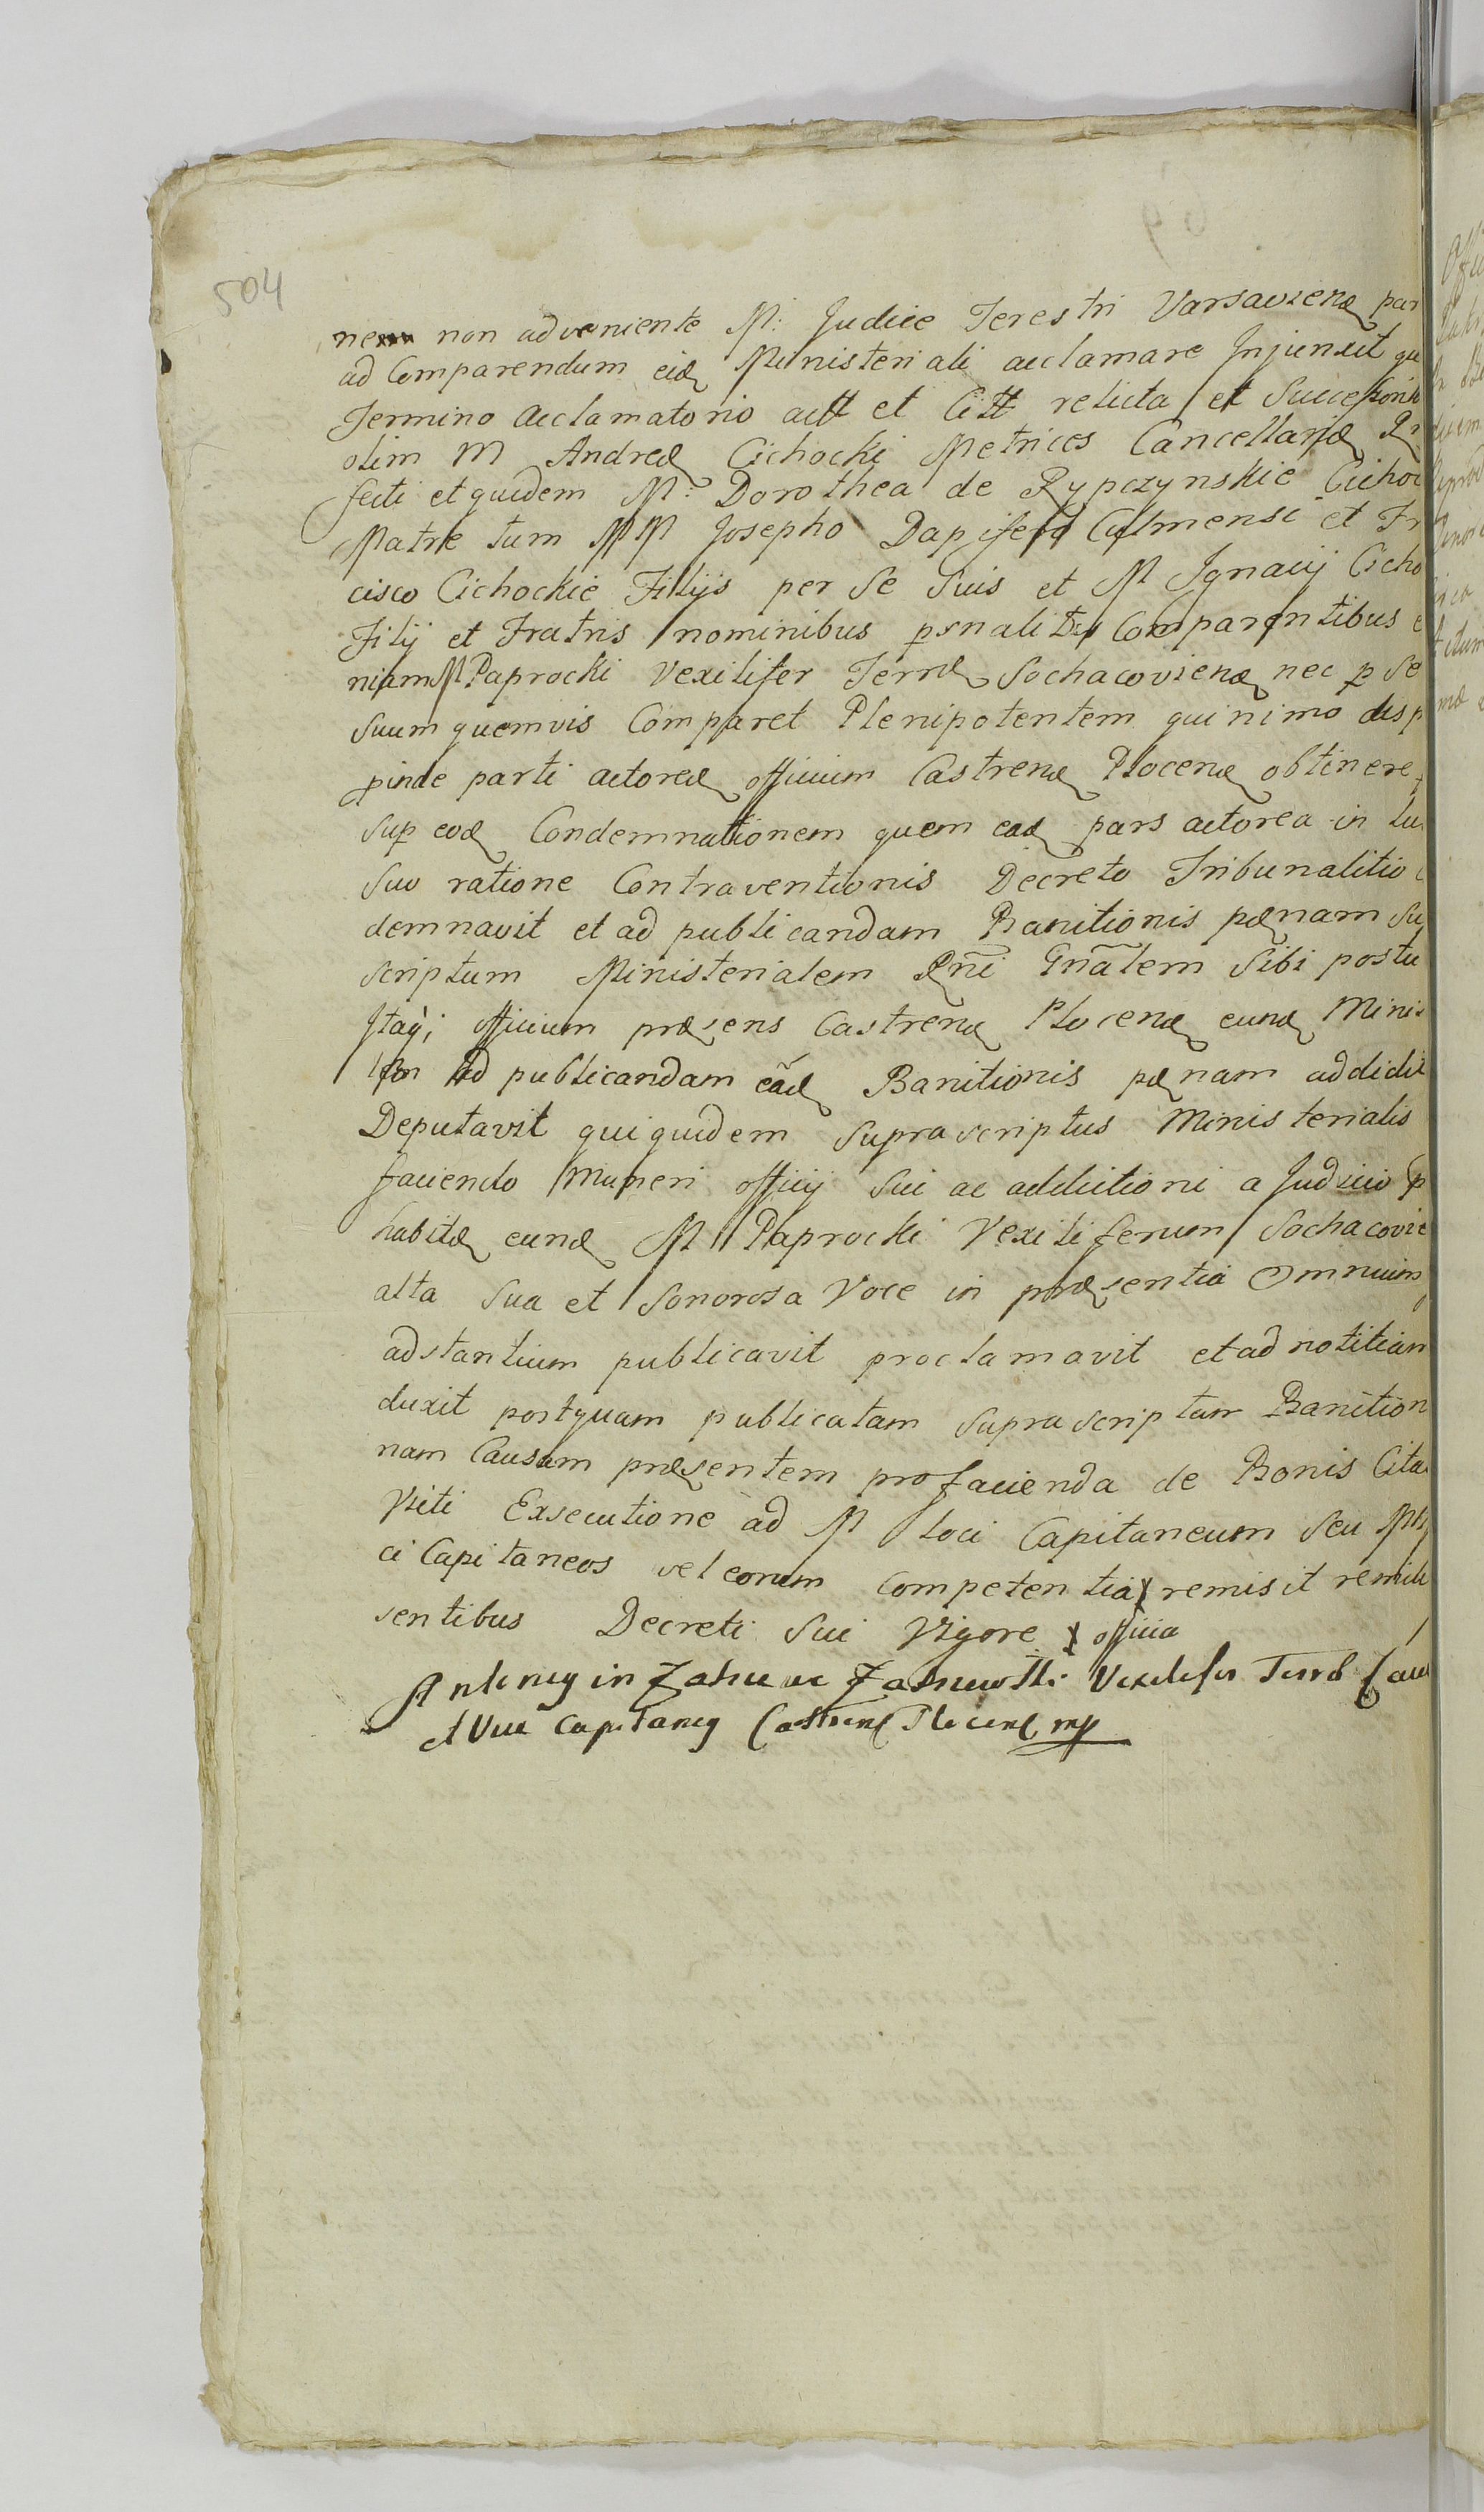 504
non adveniente M: Judice Terestri Varsavienæ par
ad Comparendum eidæ Ministeriali acclamare Injunxit qu
Termino Acclamatorio actt et Citt relicta et Successorib
olim M Andreæ Cichocki Metrices Cancellariæ Pr
fecti et quidem M: Dorothea de Rypczynskie Cichoc
Matre tum MM Josepho Dapifero Culmensi et Fr
cisco Cichockie Filijs per Se Suis et M Ignacij Cicho
Filij et Fratris nominibus psnaliter Comparentibus
niam M Paprocki Vexilifer Terræ Sochacovienæ nec p Se
Suum quemvis Comparet Plenipotentem quinimo desp
pinde parti actoreæ officium Castrenæ Plocenæ obtinere
Sup eodæ Condemnationem quem eadæ pars actorea in Lu
Suo ratione Contraventionis Decreto Tribunalitio
demnavit et ad publicandam Banitionis pænam Su
scriptum Ministerialem Rni Gnalem Sibi postu
Itaq; officium præsens Castrenæ Plocenæ eundæ Minis
ad publicandam eadæ Banitionis pænam addidit
Deputavit qui quidem Suprascriptus Ministerialis
faciendo Muneri officij Sui ac addictioni a Judicio p
habitæ eundæ M Paprocki Vexiliferum Sochacovie
alta Sua et Sonorosa Voce in præsentia Omnium
adstantium publicavit proclamavit et ad notitiam
duxit postquam publicatam Supra Scriptam Banition
nam Causam præsentem pro facienda de Bonis Cita
Victi Exsecutione ad M loci Capitaneum Seu MM
ci Capitaneos vel eorum Competentia X remisit remitti
sentibus Decreti Sui Vigore X officia
Antonij in Vexilifer Terræ
et Vice Capitaneg Castrenæ Plocenæ mp